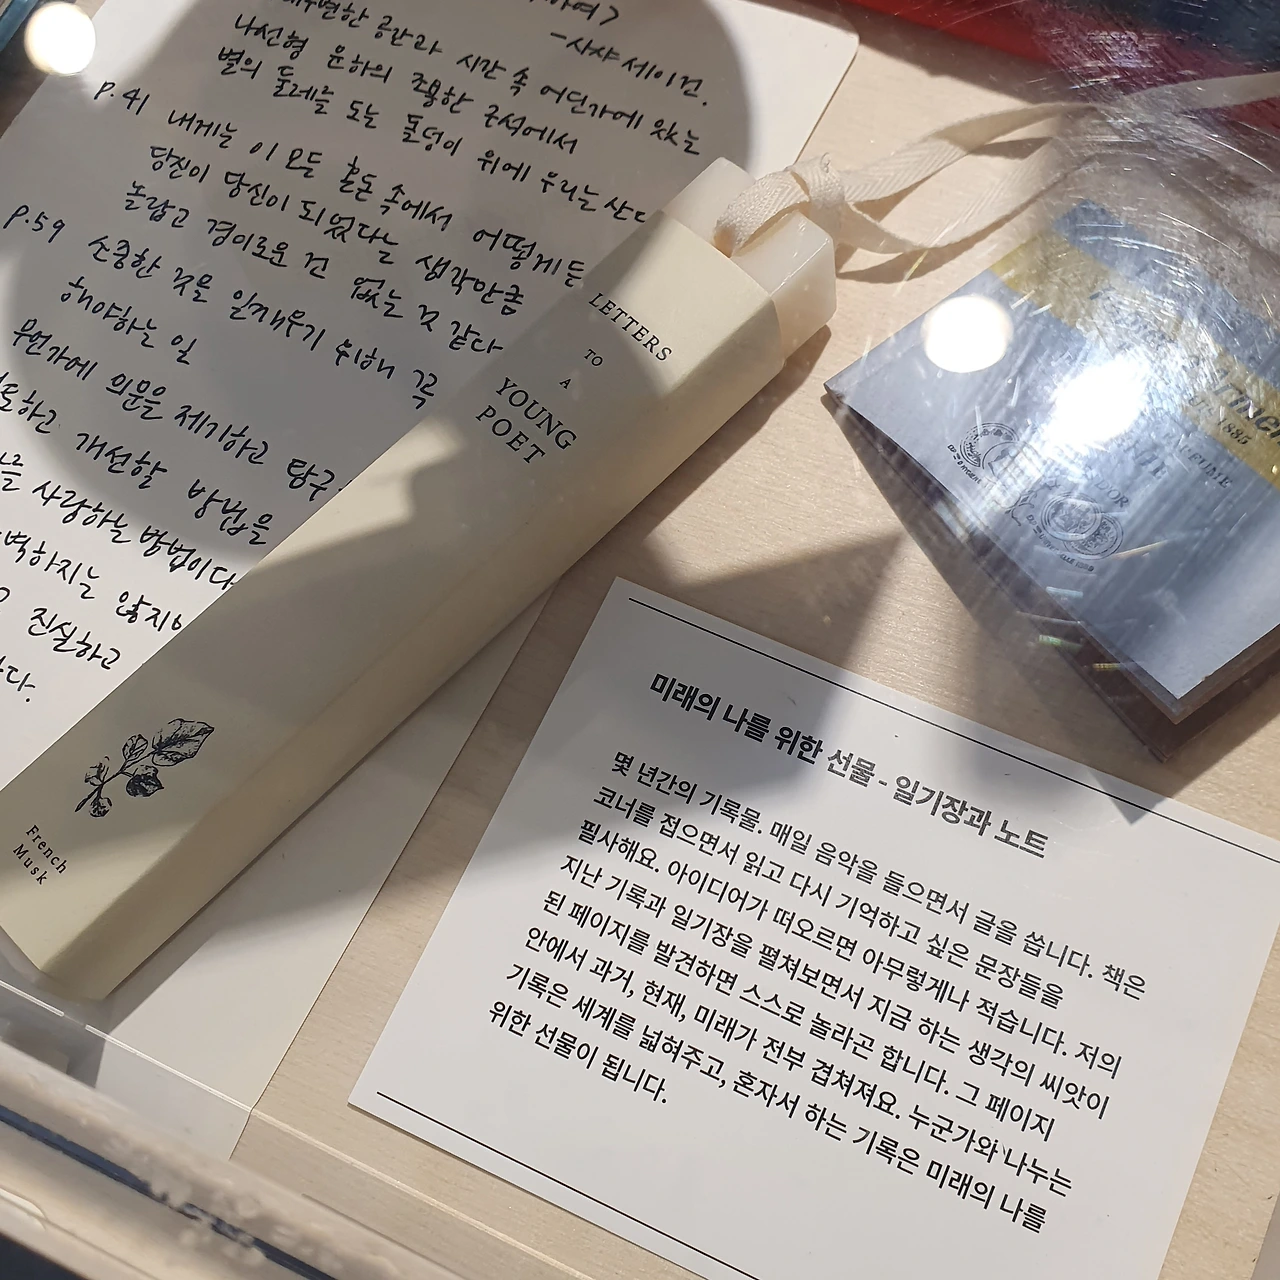 -사샤 세이건.
공간과 시간 속 어딘가에 있는
나선형 은하의 조용한 구석에서
별의 둘레를 도는 돌덩이 위에 우리는 산다
p.41 내게는 이 모든 혼돈 속에서 어떻게든
당신이 당신이 되었다는 생각만큼
놀랍고 경이로운 건 없는 것 같다
p.59 소중한 것을 일깨우기 위해 꼭
해야하는 일
무언가에 의문을 제기하고 탐구
개선할 방법을
사랑하는 방법이다
않지만
진실하고
LETTERS
TO
A
YOUNG
POET
French
Musk
1885
D'OR
미래의 나를 위한 선물 - 일기장과 노트
몇 년간의 기록물. 매일 음악을 들으면서 글을 씁니다. 책은
코너를 접으면서 읽고 다시 기억하고 싶은 문장들을
필사해요. 아이디어가 떠오르면 아무렇게나 적습니다. 저의
지난 기록과 일기장을 펼쳐보면서 지금 하는 생각의 씨앗이
된 페이지를 발견하면 스스로 놀라곤 합니다. 그 페이지
안에서 과거, 현재, 미래가 전부 겹쳐져요. 누군가와 나누는
기록은 세계를 넓혀주고, 혼자서 하는 기록은 미래의 나를
위한 선물이 됩니다.